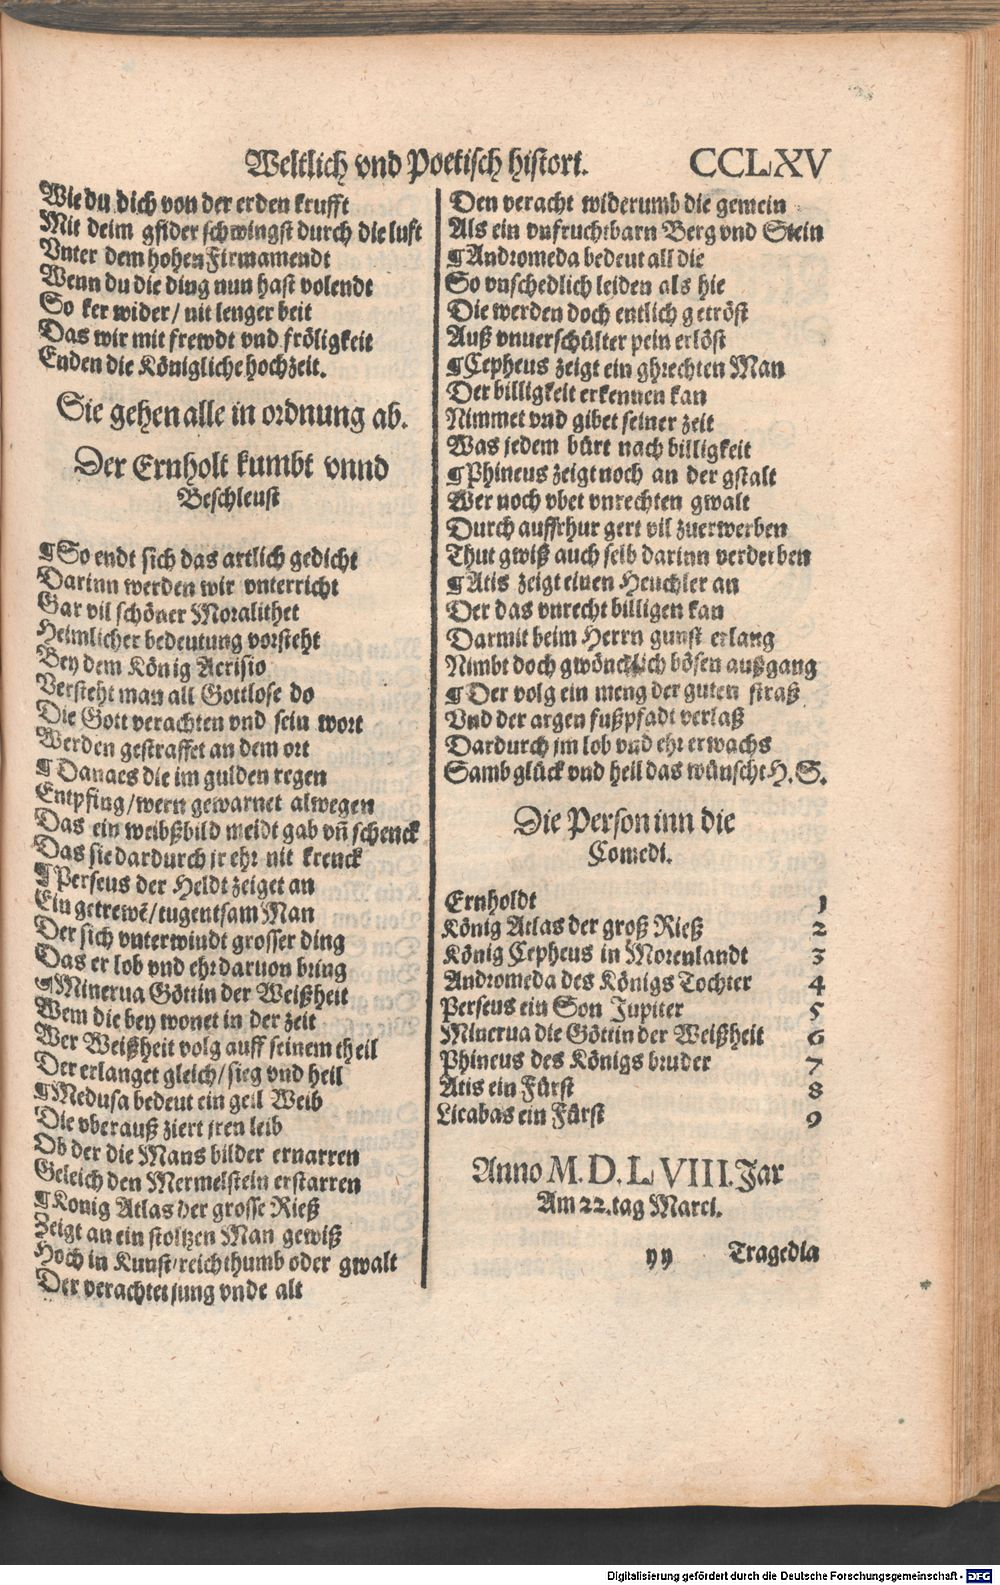 Weltlich vnd Poetisch histori. CCLXV
Wie du dich von der erden krufft
Mit deim gfider schwingst durch die luft
Vnter dem hohen Firmamendt
Wenn du die ding nun hast volendt
So ker wider / nit lenger beit
Das wir mit frewdt vnd fröligkeit
Enden die Königliche hochzeit.
Sie gehen alle in ordnung ab.
Der Ernholt kumbt vnnd
Beschleust
¶ So endt sich das artlich gedicht
Darinn werden wir vnterricht
Gar vil schöner Moralithet
Heimlicher bedeutung vorsteht
Bey dem König Acrisio
Versteht man all Gottlose do
Die Gott verachten vnd sein wort
Werden gestraffet an dem ort
¶ Danaes die im gulden regen
Entpfing / wern gewarnet alwegen
Das ein weibßbild meidt gab vn̄ schenck
Das sie dardurch jr ehr nit krenck
¶ Perseus der Heldt zeiget an
Ein getrewē / tugentsam Man
Der sich vnterwindt grosser ding
Das er lob vnd ehr daruon bring
¶ Minerua Göttin der Weißheit
Wem die bey wonet in der zeit
Wer Weißheit volg auff seinem theil
Der erlanget gleich / sieg vnd heil
¶ Medusa bedeut ein geil Weib
Die vberauß ziert jren leib
Ob der die Mans bilder ernarren
Geleich den Mermelstein erstarren
¶ Konig Atlas der grosse Rieß
Zeigt an ein stoltzen Man gewiß
Hoch in Kunst / reichthumb oder gwalt
Der verachtet jung vnde alt
Den veracht widerumb die gemein
Als ein vnfruchtbarn Berg vnd Stein
¶ Andromeda bedeut all die
So vnschedlich leiden als hie
Die werden doch entlich getröst
Auß vnuerschülter pein erlöst
¶ Cepheus zeigt ein ghrechten Man
Der billigkeit erkennen kan
Nimmet vnd gibet seiner zeit
Was jedem bürt nach billigkeit
¶ Phineus zeigt noch an der gstalt
Wer noch vbet vnrechten gwalt
Durch auffrhur gert vil zuerwerben
Thut gwiß auch selb darinn verderben
¶ Atis zeigt einen Heuchler an
Der das vnrecht billigen kan
Darmit beim Herrn gunst erlang
Nimbt doch gwöncklich bösen außgang
¶ Der volg ein meng der guten straß
Vnd der argen fußpfadt verlaß
Dardurch jm lob vnd ehr erwachs
Samb glück vnd heil das wünscht H. S.
Die Person inn die
Comedi.
Ernholdt 1
König Atlas der groß Rieß 2
König Cepheus in Morenlandt 3
Andromeda des Königs Tochter 4
Perseus ein Son Jupiter 5
Minerua die Göttin der Weißheit 6
Phineus des Königs bruder 7
Atis ein Fürst 8
Licabas ein Fürst 9
Anno M. D. L VIII. Jar
Am 22. tag Marci.
yy Tragedia
Digitalisierung gefördert durch die Deutsche Forschungsgemeinschaft - DFG